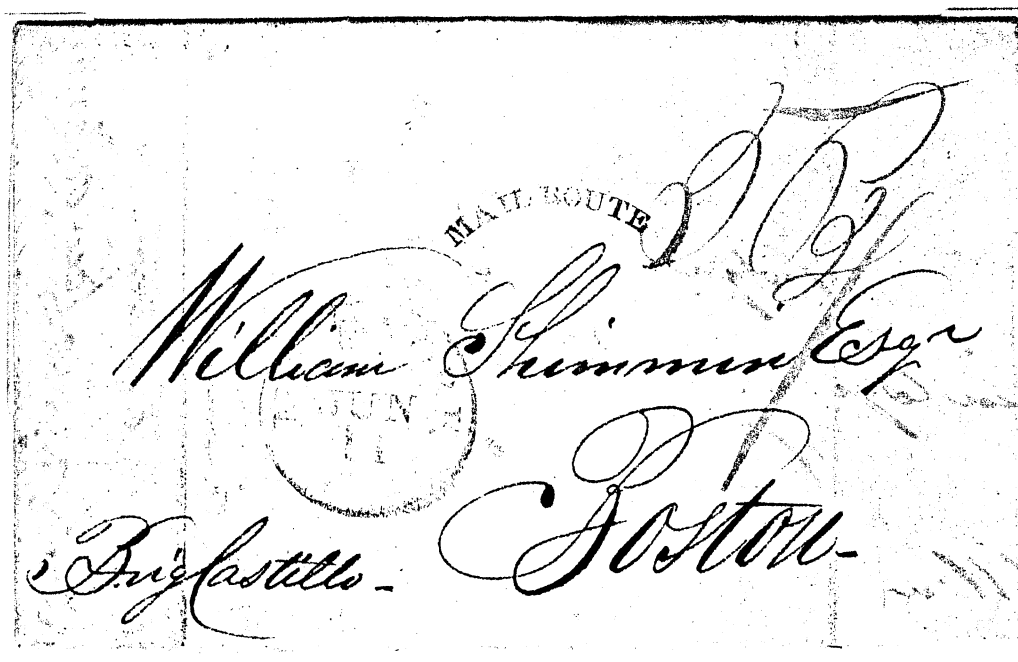 MAIL ROUTE
William Shimmin Esqr
JUN
11
Boston
Brig Castillo